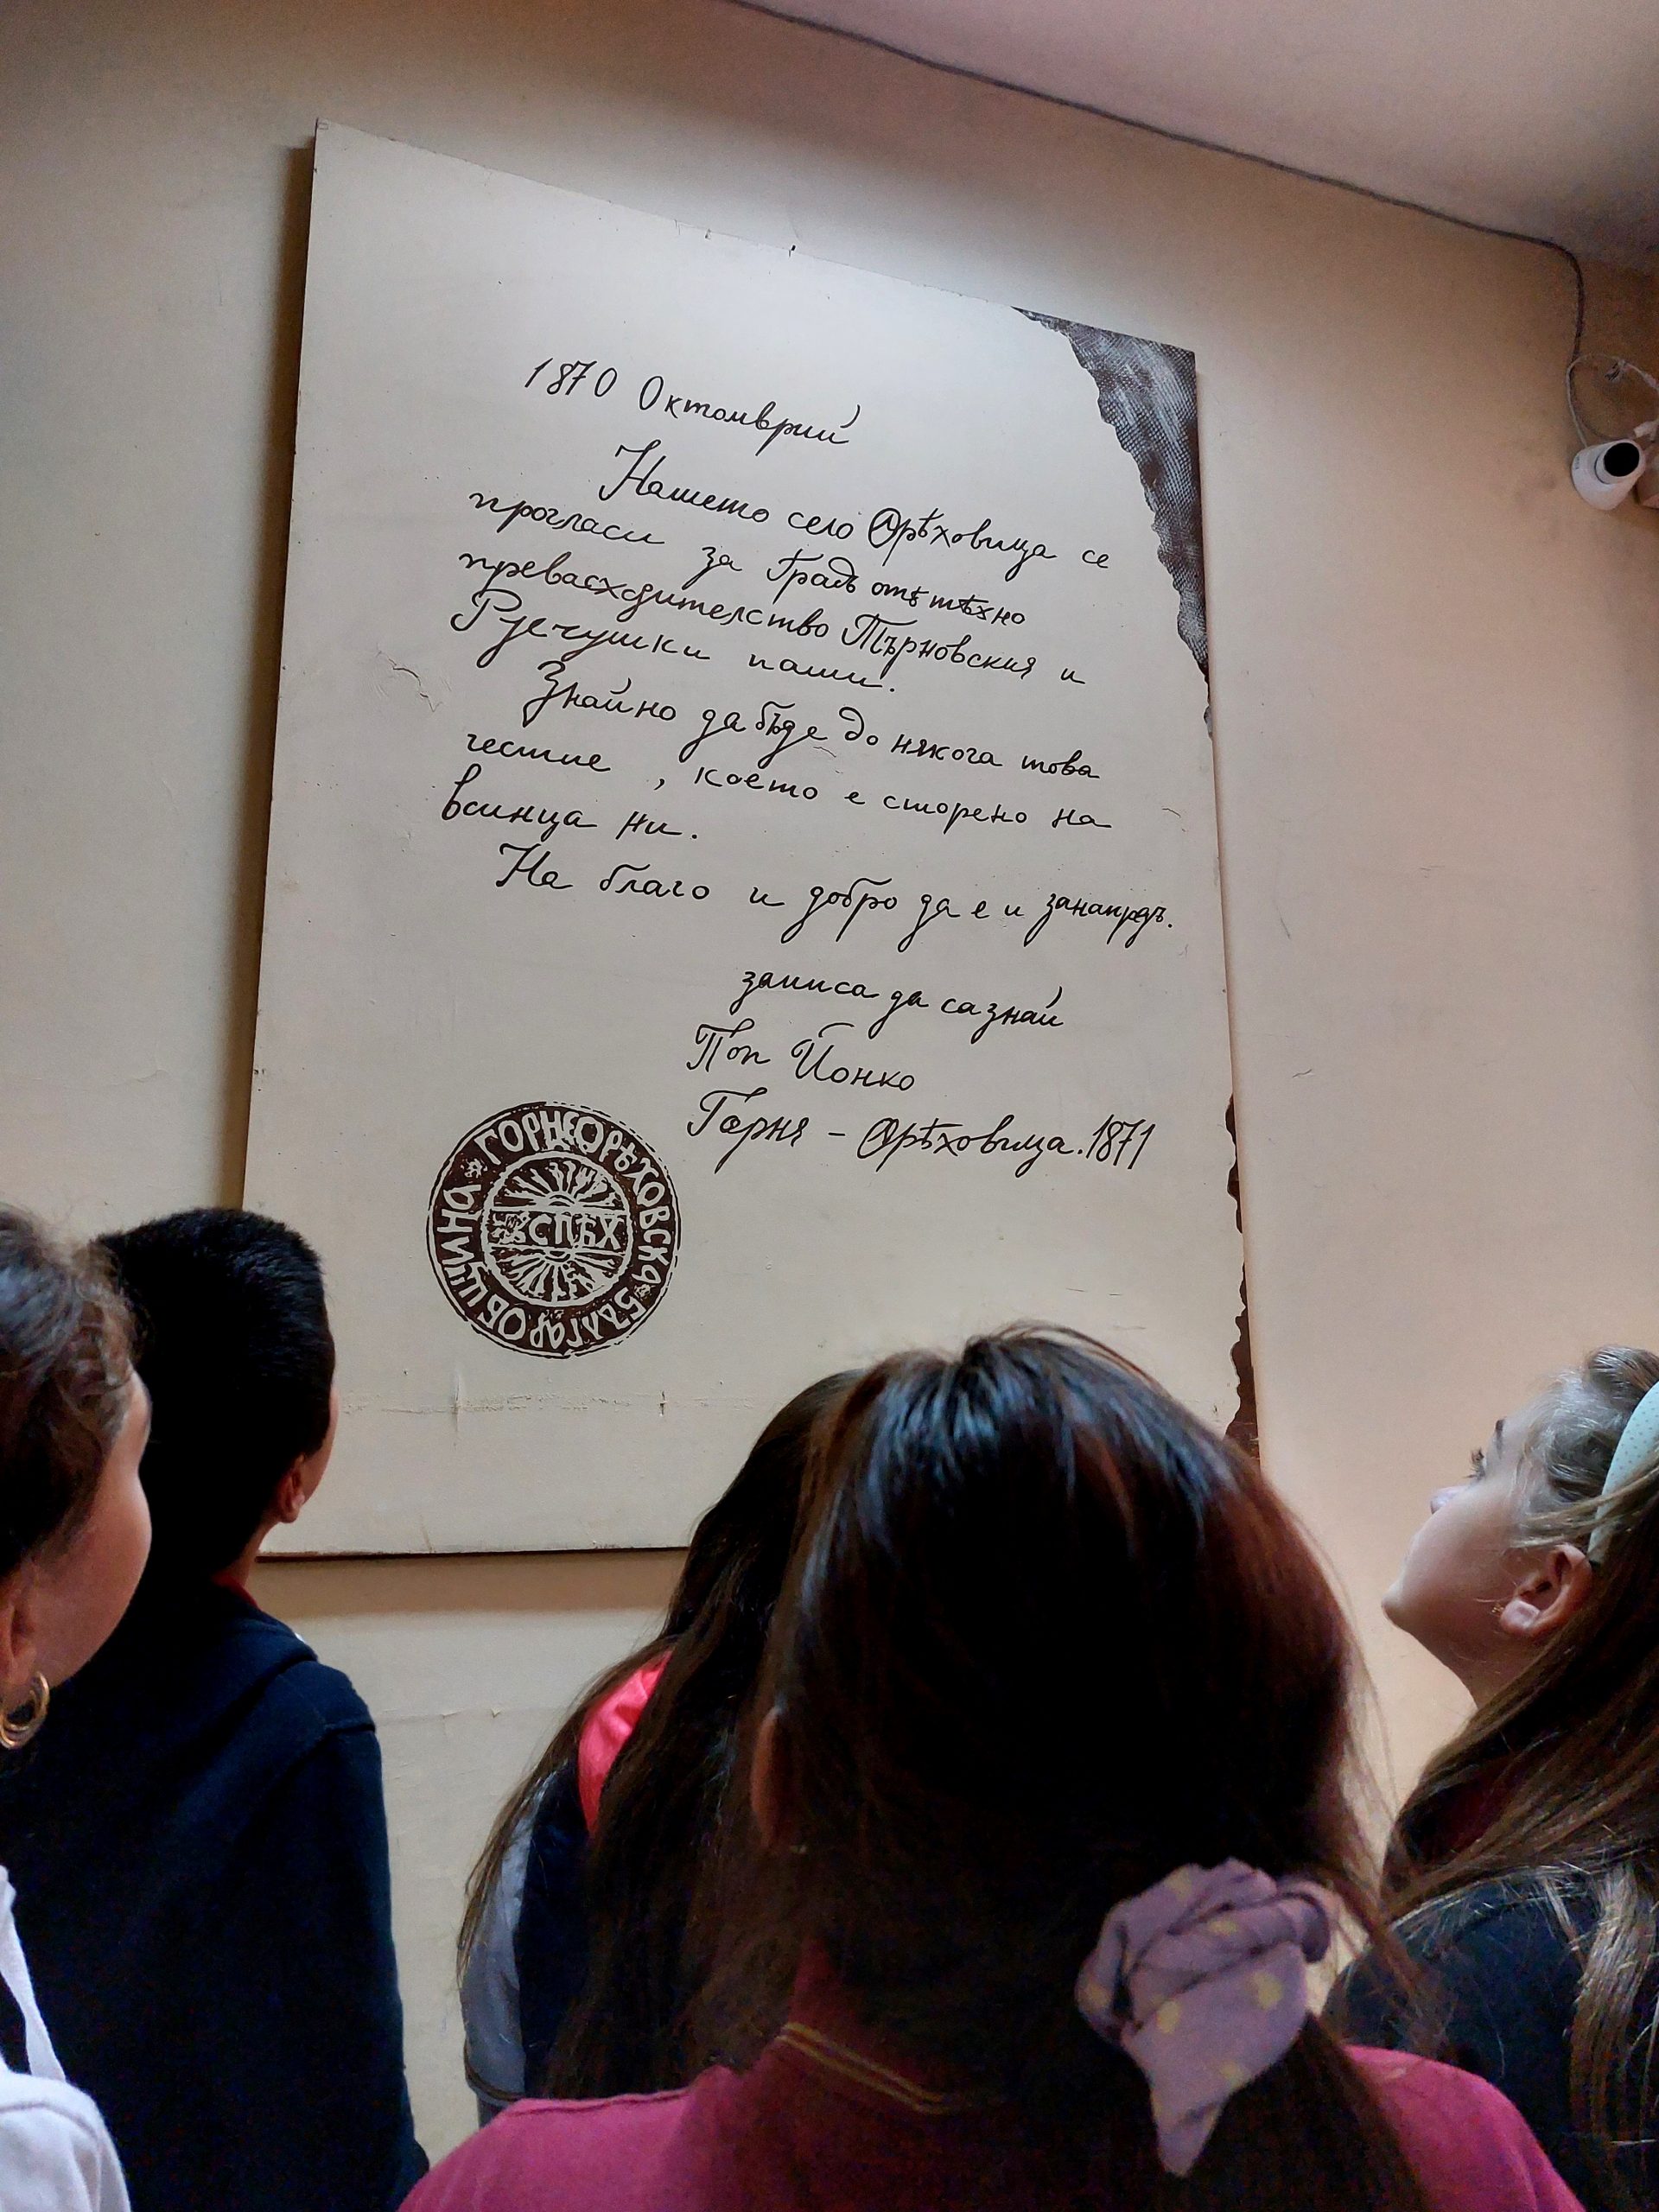 1870 Октомврий
Нашето село Орѣховица се
прогласи за Градъ отъ тѣхно
превасхдителство Търновския и
Русчушки паши.
Знайно да бъде до някога това
честие, което е сторено на
всинца ни.
На благо и добро да е и занапрдъ.
записа да са знай
Поп Йонко
Горня - Орѣховица. 1871
ГОРНЕОРѢХОВСКА БЪЛГАР ОБЩИНА
СПБХ